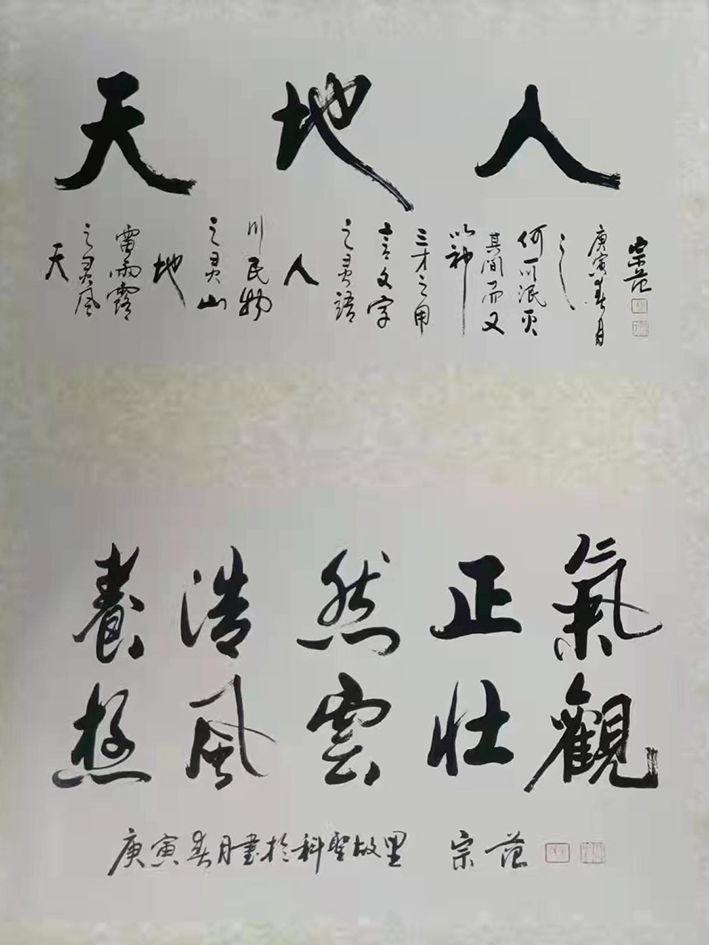 天地人
天
之灵风
雷雨露
地
之灵山
川民物
人
之灵语
言文字
三才之用
以神
其间而又
何可泯灭
之
庚寅春月
宗范
養浩然正氣
極風雲壮觀
庚寅春月書於科聖故里 宗范